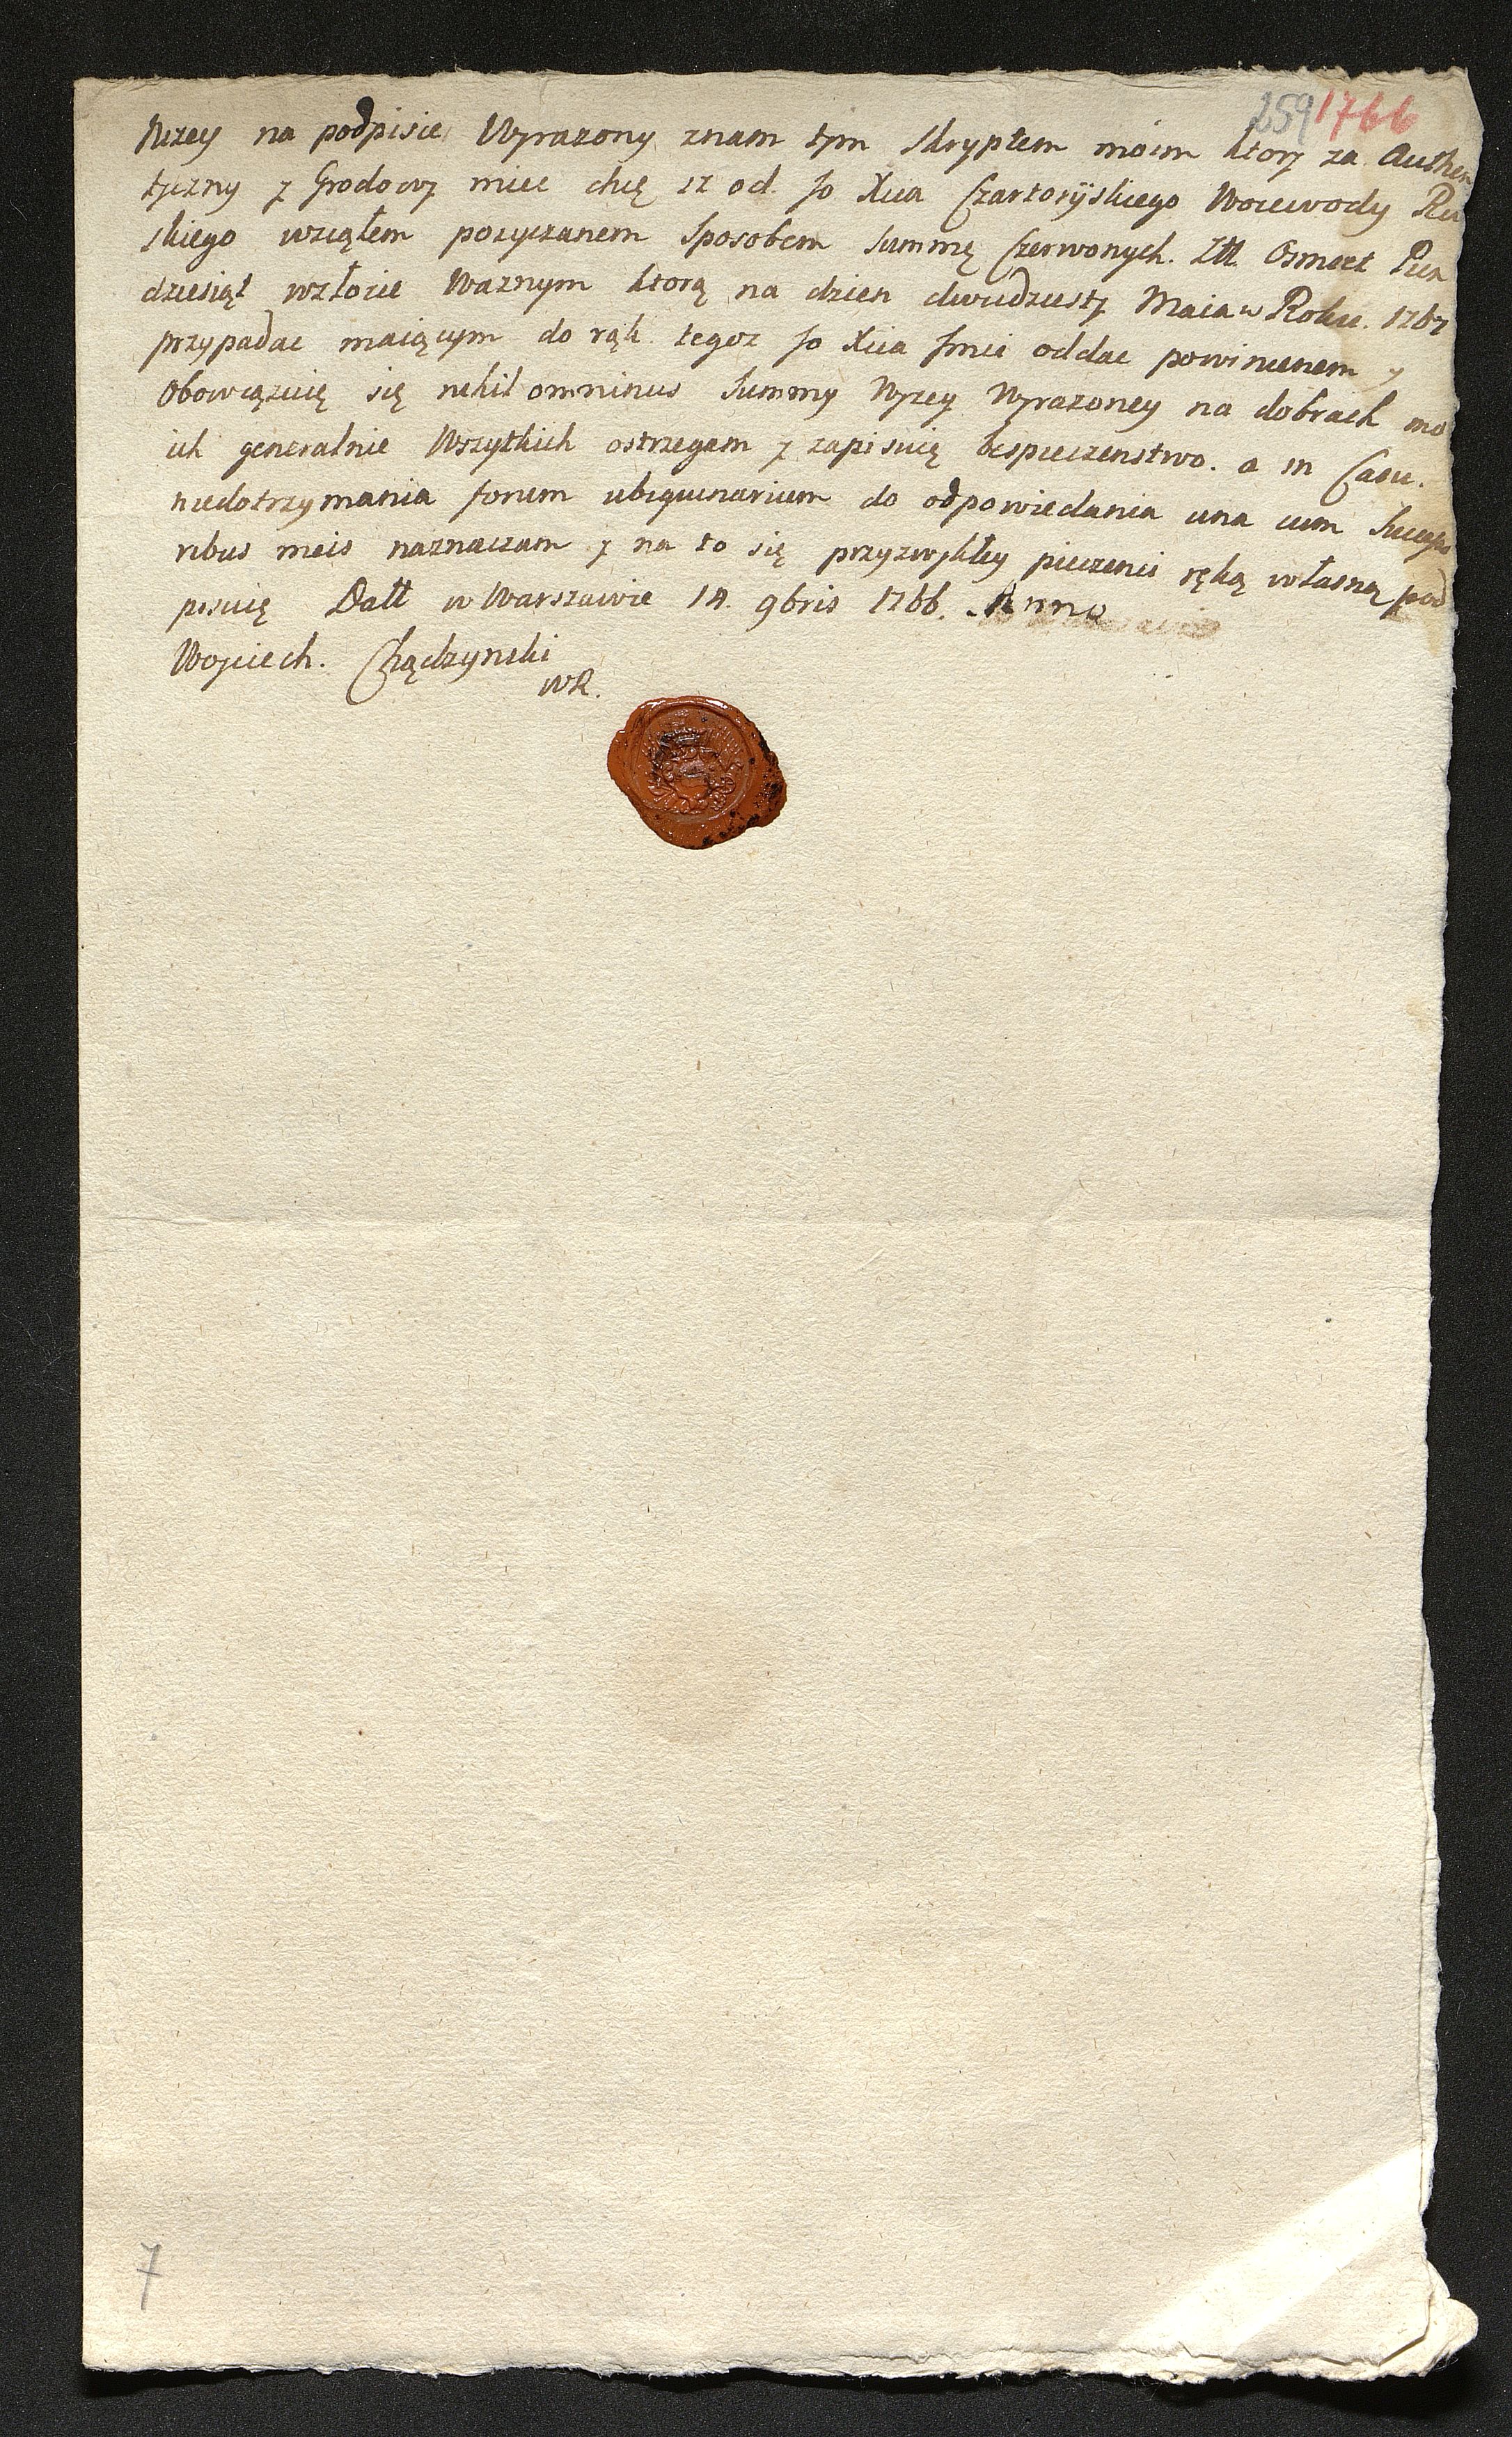 259 1766
Nizey na podpisie Wyrazony znam tym skryptem moim ktory za Authen
tyczny y Grodowy miec chcę iz od Jo Xcia Czartoryiskiego Woiewody Ru
skiego wziąłem pozyczanem sposobem summę Czerwonych. Złł. Osmset Piec
dziesiąt wzłocie Waznym ktorą na dzien dwudziesty Maia w Roku. 1767
przypadac maiącym do rąk tegoz Jo Xcia Jmci oddac powinienem y
Obowięzuię się nehilominus summy Wyzey Wyrazoney na dobrach mo
ich generalnie Wszytkich ostrzegam y zapisuię bespieczenstwo. a in Casu.
niedotrzymania forum ubiquinarium do odpowiedania una cum Sucesso
ribus meis naznaczam y na to się przyzwykłey pieczenci ręką własną pod
pisuię Datt w Warszawie 14. 9bris 1766. Anno
Wojciech. Chądzynski
WR.
7